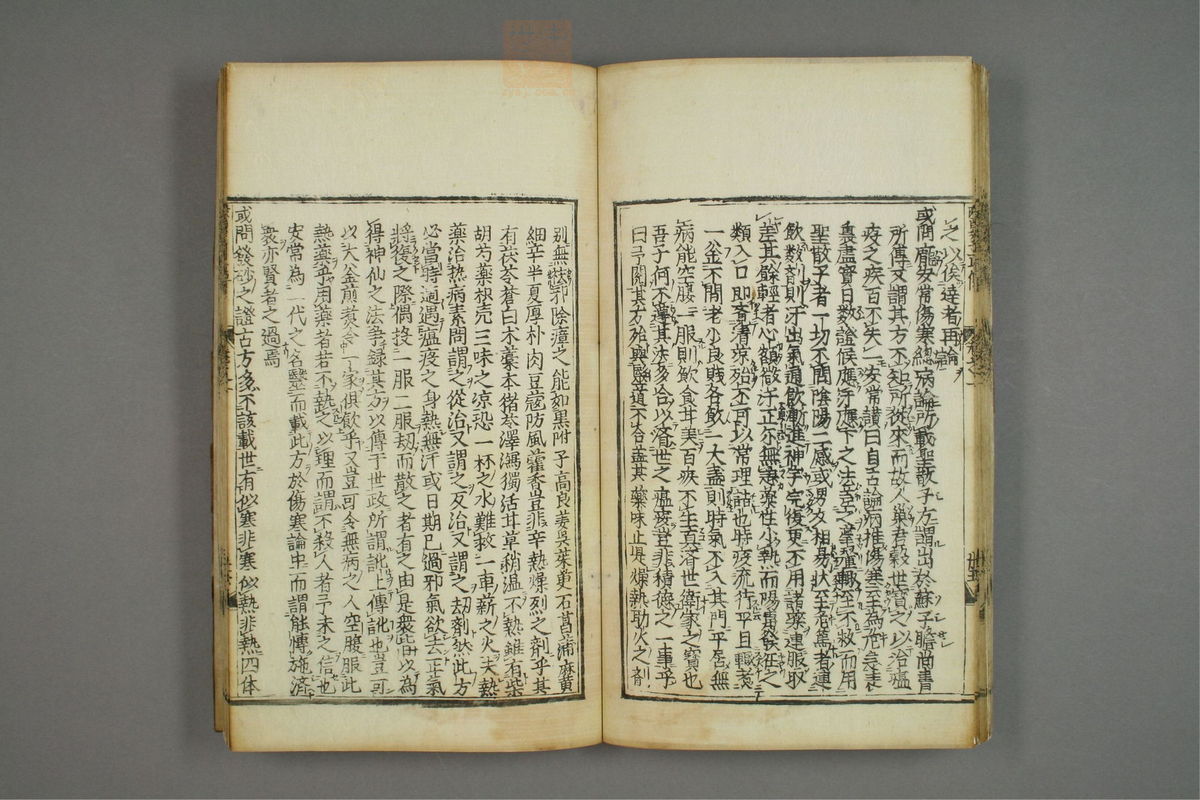 之以俟達者再論
或問龐安常傷寒總病論所載聖散子方謂出於蘇子瞻尚書
所傳又謂其方不知所從來而故人巢君穀世寶之以治瘟
疫之疾百不失一安常讃曰自古論病惟傷寒至為危急表
裏虛實日數證候應汗應下之法差之毫釐輙至不救而用
聖散子者一切不問陰陽二感或男女相易狀至危篤者連
飲數劑則汗出氣通飲食漸進神宇完復更不用諸藥連服取
差其餘輕者心額微汗正尓無恙藥性小熱而陽毒發狂之
類入口即覺清凉殆不可以常理詰也時疫流行平旦輙煑
一釜不問老少良賤各飲一大盞則時氣不入其門平居無
病能空腹一服則飲食甘美百疾不生真済世衛家之寶也
吾子何不遵其法多合以済世之瘟疫豈非積德之一事乎
曰予閱其方殆與醫道不合盖其藥味止是燥熱助火之劑
别無祛邪除瘴之能如黒附子高良姜吳茱萸石菖蒲麻黄
細辛半夏厚朴肉豆蔻防風藿香豈非辛熱燥烈之劑乎其
有茯苓蒼白朮藁本猪苓澤瀉獨活甘草稍温不熱雖有柴
胡芍藥枳壳三味之凉恐一杯之水難救一車薪之火夫熱
藥治熱病素問謂之從治又謂之反治又謂之劫劑然此方
必當時適遇瘟疫之身熱無汗或日期已過邪氣欲去正氣
將復之際偶投一服二服劫而散之者有之由是衆皆以為
得神仙之法争録其方以傳于世政所謂訛上傳訛也豈可
以大釜煎煑合家俱飲乎又豈可令無病之人空腹服此
熱藥乎用藥者若不熱之以理而謂不殺人者予未之信也
安常為一代之名醫而載此方於傷寒論中而謂能慱施済
衆亦賢者之過焉
或問發砂之證古方多不該載世有似寒非寒似熱非熱四体